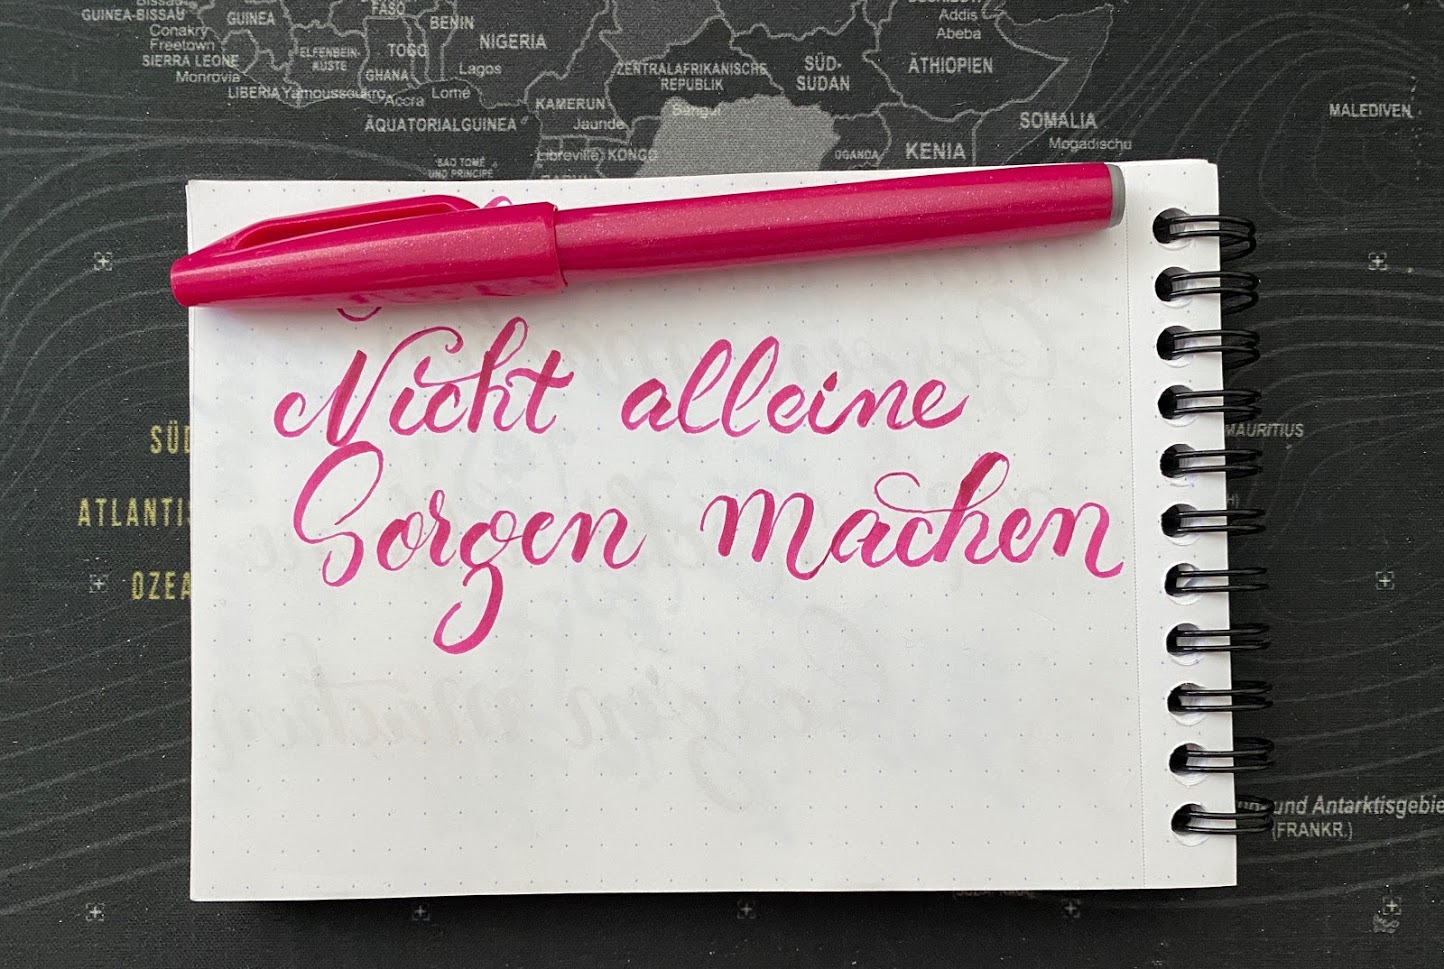 Bissau
GUINEA-BISSAU
Conakry
Freetown
SIERRA LEONE
Monrovia
LIBERIA
GUINEA
ELFENBEIN-
KÜSTE
Yamoussoukro
FASO
TOGO
GHANA
Accra
BENIN
Lomé
NIGERIA
Lagos
ÄQUATORIALGUINEA
KAMERUN
Jaunde
SAO TOMÉ
UND PRINCIPE
Libreville
KONGO
ZENTRALAFRIKANISCHE
REPUBLIK
Bangui
SÜD-
SUDAN
Addis
Abeba
ÄTHIOPIEN
UGANDA
KENIA
SOMALIA
Mogadischu
MALEDIVEN
Nicht alleine
Sorgen machen
SÜD
ATLANTIS
OZEA
MAURITIUS
und Antarktisgebie
(FRANKR.)